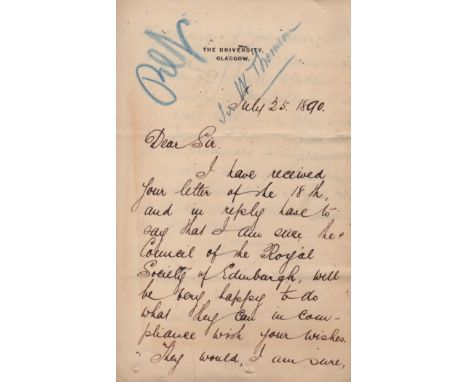 THE UNIVERSITY,
GLASGOW.
Sir W Thomson
July 25. 1890.
Dear Sir.
I have received
your letter of the 18th,
and in reply have to
say that I am sure the
Council of the Royal
Society of Edinburgh, will
be very happy to do
what they can in com-
pliance with your wishes.
They would, I am sure,